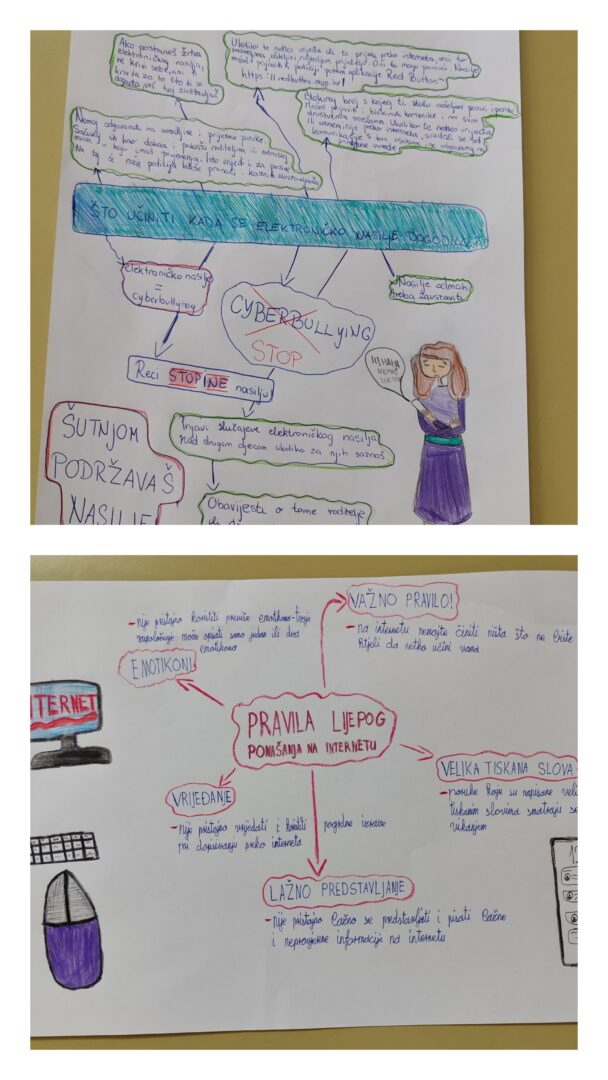 Ako postaneš žrtva
elektroničkog nasilja,
ne krivi sebe, nisi
kriv/a za to što ti se
događa već tvoj zlostavljač
Ukoliko te netko vrijeđa ili ti prijeti preko interneta, reci to
roditeljima, učiteljici, najboljem prijatelju.
možeš prijaviti i policiji putem aplikacije Red Button
https://redbutton.mup.hr/
Blokiraj broj s kojeg ti stižu neželjeni pozivi i poruke.
Možeš prijaviti i blokirati korisnike i na svim
društvenim mrežama. Ukoliko te netko vrijeđa
ili uznemiruje preko interneta, suzdrži se od
komunikacije s tom osobom, ne odgovaraj na
primljene uvrede
Nemoj odgovarati na uvredljive i prijeteće poruke.
Sačuvaj ih kao dokaz i pokaži roditeljima ili odrasloj
osobi u koju imaš povjerenja. Isto vrijedi i za pozive.
Na taj će način policija lakše pronaći i kazniti zlostavljača
ŠTO UČINITI KADA SE ELEKTRONIČKO NASILJE DOGODILO?
elektroničko nasilje
=
cyberbullying
CYBERBULLYING
STOP
Nasilje odmah
treba zaustaviti
Reci STOP! NE nasilju
HAHA
NEMAŠ
TIKTOK
ŠUTNJOM
PODRŽAVAŠ
NASILJE
Prijavi slučajeve elektroničkog nasilja
nad drugom djecom ukoliko za njih saznaš.
Obavijesti o tome roditelje
VAŽNO PRAVILO!
- na internetu nemojte činiti ništa što ne biste
htjeli da netko učini vama
- nije pristojno koristiti previše emotikona - tvoje
raspoloženje može opisati samo jedan ili dva
emotikona
EMOTIKONI
INTERNET
PRAVILA LIJEPOG
PONAŠANJA NA INTERNETU
VELIKA TISKANA SLOVA
- poruke koje su napisane veli
tiskanim slovima smatraju se
vikanjem
VRIJEĐANJE
- nije pristojno vrijeđati i koristiti pogrdne izraze
pri dopisivanju preko interneta
LAŽNO PREDSTAVLJANJE
- nije pristojno lažno se predstavljati i pisati lažne
i neprovjerene informacije na internetu